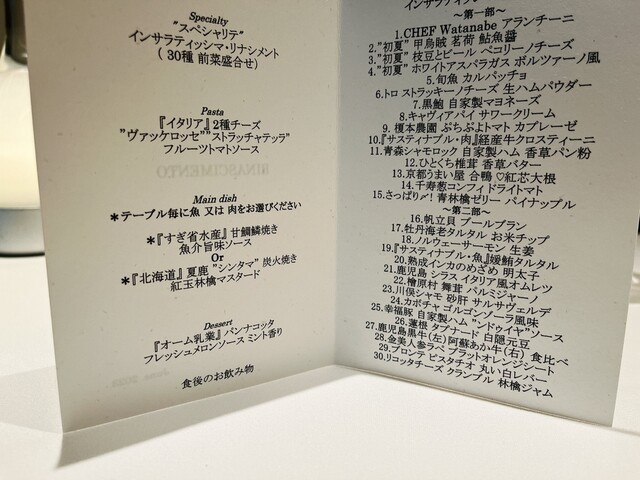 Specialty
"スペシャリテ"
インサラティッシマ・リナシメント
( 30種 前菜盛合せ)
Pasta
『イタリア』2種チーズ
"ヴァッケロッセ""ストラッチャテッラ"
フルーツトマトソース
Main dish
＊テーブル毎に魚 又は 肉をお選びください
＊『すぎ省水産』甘鯛鱗焼き
魚介旨味ソース
Or
＊『北海道』夏鹿 "シンタマ" 炭火焼き
紅玉林檎マスタード
Dessert
『オーム乳業』パンナコッタ
フレッシュメロンソース ミント香り
食後のお飲み物
～第一部～
1.CHEF Watanabe アランチーニ
2."初夏" 甲烏賊 茗荷 鮎魚醤
3."初夏" 枝豆とビール ペコリーノチーズ
4."初夏" ホワイトアスパラガス ボルツァーノ風
5.旬魚 カルパッチョ
6.トロ ストラッキーノチーズ 生ハムパウダー
7.黒鮑 自家製マヨネーズ
8.キャヴィアパイ サワークリーム
9.榎本農園 ぷちぷよトマト カプレーゼ
10.『サスティナブル・肉』経産牛クロスティーニ
11.青森シャモロック 自家製ハム 香草パン粉
12.ひとくち椎茸 香草バター
13.京都うまい屋 合鴨♡紅芯大根
14.千寿葱コンフィドライトマト
15.さっぱり〆! 青林檎ゼリー パイナップル
～第二部～
16.帆立貝 ブールブラン
17.牡丹海老タルタル お米チップ
18.ノルウェーサーモン 生姜
19.『サスティナブル・魚』媛鮪タルタル
20.熟成インカのめざめ 明太子
21.鹿児島 シラス イタリア風オムレツ
22.檜原村 舞茸 パルミジャーノ
23.川俣シャモ 砂肝 サルサヴェルデ
24.カボチャ ゴルゴンゾーラ風味
25.幸福豚 自家製ハム "ンドゥイヤ"ソース
26.蓮根 タプナード 白隠元豆
27.鹿児島黒牛(左) 阿蘇あか牛(右) 食比べ
28.金美人参ラペ ブラットオレンジシート
29.ブロンテ ピスタチオ 丸い白レバー
30.リコッタチーズ クランブル 林檎ジャム